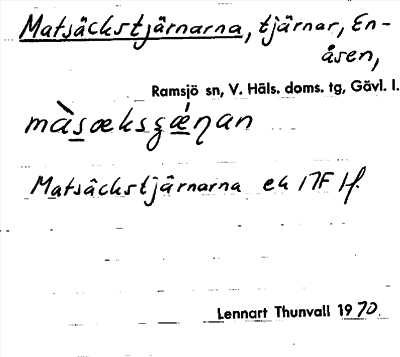 Matsäckstjärnarna, tjärnar, En-
åsen,
Ramsjö sn, V. Häls. doms. tg, Gävl. l.
màsæksʒǽɳan
Matsäckstjärnarna ek
Lennart Thunvall 1970.